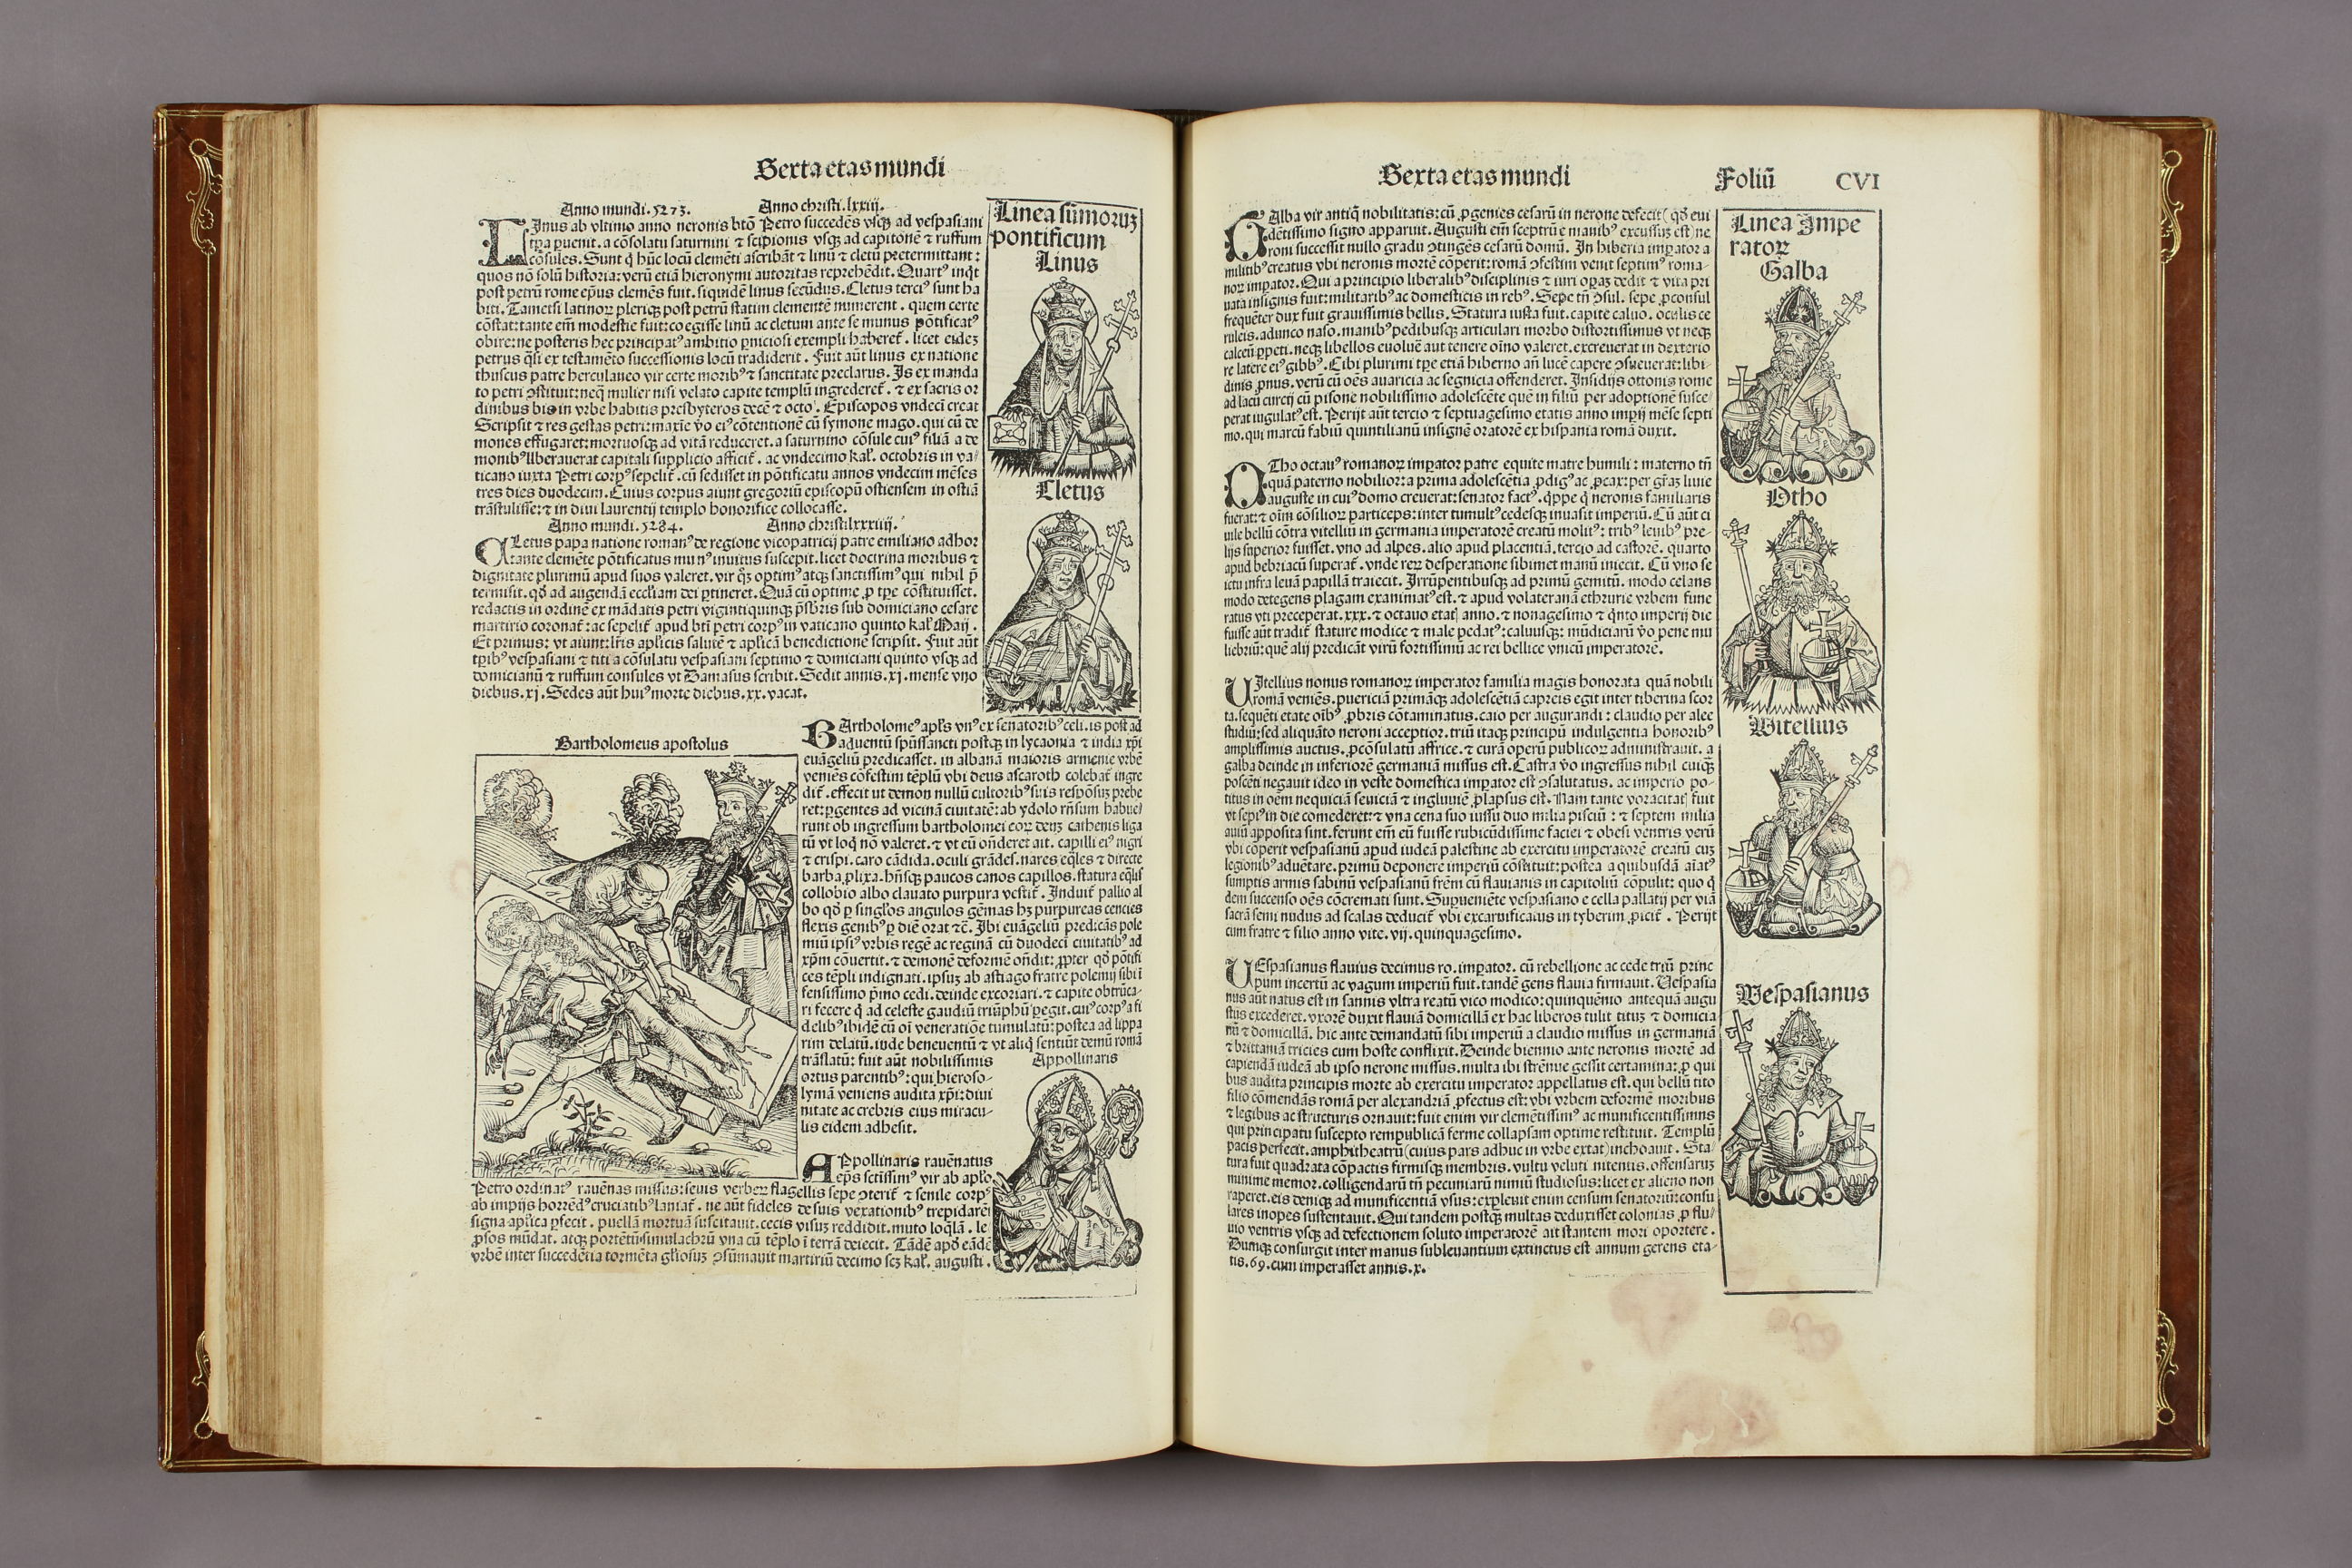 Sexta etas mundi
Anno mundi. 5273. Anno christi. lxxiij.
LInus ab vltimo anno neronis btō Petro succedēs vsq; ad vespasiani
tpa puenit. a cōsolatu saturnini ⁊ scipionis vsq; ad capitonē ⁊ ruffum
cōsules. Sunt q̇ hūc locū clemēti ascribāt ⁊ linū ⁊ cletū pretermittant:
quos nō solū historia: verū etiā hieronymi autoritas reprehēdit. Quartꝰ inqt
post petrū rome epus clemēs fuit. siquidē linus secūdus. Cletus terciꝰ sunt ha
biti. Tametsi latinoꝝ pleriq; post petrū statim clementē numerent. quem certe
cōstat: tante em̄ modestie fuit: coegisse linū ac cletum ante se munus pōtificatꝰ
obire: ne posteris hec principatꝰ ambitio pniciosi exempli haberet̄. licet eidez
petrus q̄si ex testamēto successionis locū tradiderit. Fuit aūt linus ex natione
thuscus patre herculaneo vir certe moribꝰ ⁊ sanctitate preclarus. Is ex manda
to petri ꝯstituit: neq; mulier nisi velato capite templū ingrederet̄. ⁊ ex sacris or
dinibus bis in vrbe habitis presbyteros decē ⁊ octo. Episcopos vndecī creat
Scripsit ⁊ res gestas petri: maxīe v̄o eiꝰ cōtentionē cū symone mago. qui cū de
mones effugaret: mortuosq; ad vitā reduceret. a saturnino cōsule cuiꝰ filiā a de
monibꝰ liberauerat capitali supplicio afficit̄. ac vndecimo kal̄. octobris in va⸗
ticano iuxta Petri corpꝰ sepelit̄. cū sedisset in pōtificatu annos vndecim mēses
tres dies duodecim. Cuius corpus aiunt gregoriū episcopū ostiensem in ostiā
trāstulisse: ⁊ in diui laurentij templo honorifice collocasse.
Anno mundi. 5284. Anno christi lxxxiiij.
CLetus papa natione romanꝰ de regione vicopatricij patre emiliano adhor
tante clemēte pōtificatus munꝰ inuitus suscepit. licet doctrina moribus ⁊
dignitate plurimū apud suos valeret. vir q̄ȝ optimꝰ atq; sanctissimꝰ qui nihil p̄
termisit. qd̄ ad augendā eccl̄iam dei ptineret. Quā cū optime ꝓ tpe cōstituisset.
redactis in ordinē ex mādatis petri vigintiquinq; p̄sbris sub domiciano cesare
martirio coronat̄: ac sepelit̄ apud bt̄i petri corpꝰ in vaticano quinto kal̄ Maij.
Et primus: vt aiunt: lr̄is aplicis salutē ⁊ aplicā benedictionē scripsit. Fuit aūt
tp̄ibꝰ vespasiani ⁊ titi a cōsulatu vespasiani septimo ⁊ domiciani quinto vsq; ad
domicianū ⁊ ruffum consules vt Damasus scribit. Sedit annis. xj. mense vno
diebus. xj. Sedes aūt huiꝰ morte diebus. xx. vacat.
Linea sūmoruꝫ
pontificum
Linus
Cletus
Bartholomeus apostolus
BArtholomeꝰ apl̄s vnꝰ ex senatoribꝰ celi. is post ad
aduentū spūssancti postq̄ȝ in lycaonia ⁊ india xp̄i
euāgeliū predicasset. in albanā maioris armenie vrbē
veniēs cōfestim tēplū vbi deus ascaroth colebat̄ ingre
dit̄. effecit ut demon nullū cultoribꝰ suis respōsuȝ prebe
ret: pgentes ad vicinā ciuitatē: ab ydolo rn̄sum habue⸗
runt ob ingressum bartholomei eoꝝ deuȝ cathenis liga
tū vt loq̇ nō valeret. ⁊ vt eū on̄deret ait. capilli eiꝰ nigri
⁊ crispi. caro cādida. oculi grādes. nares eq̄les ⁊ directe
barba ꝓlixa. hn̄sq; paucos canos capillos. statura eq̄lis
collobio albo clauato purpura vestit̄. Induit̄ pallio al
bo qd̄ ꝑ singl̄os angulos gēmas hȝ purpureas cencies
flexis genibꝰ ꝑ diē orat ⁊c̄. Ibi euāgeliū predicās pole
miū ipsiꝰ vrbis regē ac reginā cū duodecī ciuitatibꝰ ad
xp̄m cōuertit. ⁊ demonē deformē on̄dit: ꝓpter qd̄ pōtifi
ces tēpli indignati. ipsuȝ ab astiago fratre polemij sibi ī
fensissimo p̄mo cedi. deinde excoriari. ⁊ capite obtrūca⸗
ri fecere q̇ ad celeste gaudiū triūphū pegit. cuiꝰ corpꝰ a fi
delibꝰ ibidē cū oī veneratiōe tumulatū: postea ad lippa
rim delatū. iude beneuentū ⁊ vt aliq̇ sentiūt demū romā
trāslatū: fuit aūt nobilissimis
ortus parentibꝰ: qui hieroso⸗
lymā veniens audita xp̄i: diui
nitate ac crebris eius miracu⸗
lis eidem adhesit.
Appollinaris
APpollinaris rauēnatus
ep̄s sctissimꝰ vir ab aplo
Petro ordinatꝰ rauēnas missus: seuis verbeꝝ flagellis sepe ꝯterit̄ ⁊ senile corpꝰ
ab impijs horrēdꝰ cruciatibꝰ laniat̄. ne aūt fideles de suis vexationibꝰ trepidarēt
signa apl̄ica pfecit. puellā mortuā suscitauit. cecis visuȝ reddidit. muto loq̄lā. le
ꝓsos mūdat. atq; portētū: simulachrū vna cū tēplo ī terrā deiecit. Tādē apd̄ eādē
vrbē inter succedētia tormēta gl̄iosuȝ ꝯsūmauit martiriū decimo scȝ kal̄. augusti.
Sexta etas mundi
Foliū CVI
GAlba vir antiq̄ nobilitatis: cū ꝓgenies cesarū in nerone defecit (qd̄ eui
dētissimo signo apparuit. Augusti em̄ sceptrū e manibꝰ excussuȝ est) ne
roni successit nullo gradu ꝯtingēs cesarū domū. In hiberia impator a
militibꝰ creatus vbi neronis mortē cōperit: romā ꝯfestim venit septimꝰ roma⸗
noꝝ impator. Qui a principio liberalibꝰ disciplinis ⁊ iuri opaȝ dedit ⁊ vita pri
uata insignis fuit: militaribꝰ ac domesticis in rebꝰ. Sepe tn̄ ꝯsul. sepe ꝓconsul
frequēter dux fuit grauissimis bellis. Statura iusta fuit. capite caluo. oculis ce
ruleis. adunco naso. manibꝰ pedibusq; articulari morbo distortissimus vt neq;
calceū ppeti. neq; libellos euoluē aut tenere oīno valeret. excreuerat in dexterio
re latere eiꝰ gibbꝰ. Cibi plurimi tpe etiā hiberno an̄ lucē capere ꝯsueuerat: libi⸗
dinis ꝓnus. verū cū oēs auaricia ac segnicia offenderet. Insidijs ottonis rome
ad lacū curcij cū pisone nobilissimo adolescēte quē in filiū per adoptionē susce⸗
perat iugulatꝰ est. Perijt aūt tercio ⁊ septuagesimo etatis anno impij mēse septi
mo. qui marcū fabiū quintilianū insignē oratorē ex hispania romā duxit.
OTho octauꝰ romanoꝝ impator patre equite matre humili: materno tn̄
quā paterno nobilior: a prima adolescētia ꝓdigꝰ ac ꝓcax: per gr̄aȝ liuie
auguste in cuiꝰ domo creuerat: senator factꝰ. q̇ppe q̇ neronis familiaris
fuerat: ⁊ oīm cōsilioꝝ particeps: inter tumultꝰ cedesq; inuasit imperiū. Cū aūt ci
uile bellū cōtra vitelliū in germania imperatorē creatū molitꝰ: tribꝰ leuibꝰ pre⸗
lijs superior fuisset. vno ad alpes. alio apud placentiā. tercio ad castorē. quarto
apud bebriacū superat̄. vnde reꝝ desperatione sibimet manū iniecit. Cū vno se
ictu infra leuā papillā traiecit. Irrūpentibusq; ad primū gemitū. modo celans
modo detegens plagam exanimatꝰ est. ⁊ apud volateranā ethrurie vrbem fune
ratus vti preceperat. xxx. ⁊ octauo etatꝭ anno. ⁊ nonagesimo ⁊ q̇nto imperij die
fuisse aūt tradit̄ stature modice ⁊ male pedatꝰ: caluusq;: mūdiciarū v̄o pene mu
liebriū: quē alij predicāt virū fortissimū ac rei bellice vnicū imperatorē.
VItellius nonus romanoꝝ imperator familia magis honorata quā nobili
romā veniēs. puericiā primāq; adolescētiā capreis egit inter tiberina scor
ta. sequēti etate oībꝰ ꝓbris cōtaminatus. caio per augurandi: claudio per alee
studiū: sed aliquāto neroni acceptior. triū itaq; principū indulgentia honoribꝰ
amplissimis auctus. ꝓcōsulatū affrice. ⁊ curā operū publicoꝝ administrauit. a
galba deinde in inferiorē germaniā missus est. Castra v̄o ingressus nihil cuiq̄ȝ
poscēti negauit ideo in veste domestica impator est ꝯsalutatus. ac imperio po⸗
titus in oēm nequiciā seuiciā ⁊ ingluuiē ꝓlapsus est. Nam tante voracitatꝭ fuit
vt sepiꝰ in die comederet: ⁊ vna cena suo iussu duo milia pisciū: ⁊ septem milia
auiū apposita sint. ferunt em̄ eū fuisse rubicūdissime faciei ⁊ obesi ventris verū
vbi cōperit vespasianū apud iudeā palestine ab exercitu imperatorē creatū cuȝ
legionibꝰ aduētare. primū deponere imperiū cōstituit: postea a quibusdā aīatꝰ
sumptis armis sabinū vespasianū fr̄em cū flauianis in capitoliū cōpulit: quo q̇
dem succenso oēs cōcremati sunt. Supueniēte vespasiano e cella pallatij per viā
sacrā semi nudus ad scalas deducit̄ vbi excarnificatus in tyberim ꝓicit̄. Perijt
cum fratre ⁊ filio anno vite. vij. quinquagesimo.
VEspasianus flauius decimus ro. impator. cū rebellione ac cede triū princ
pum incertū ac vagum imperiū fuit. tandē gens flauia firmauit. Vespasia
nus aūt natus est in sannis vltra reatū vico modico: quinquēnio antequā augu
stus excederet. vxorē duxit flauiā domicillā ex hac liberos tulit tituȝ ⁊ domicia
nū ⁊ domicillā. hic ante demandatū sibi imperiū a claudio missus in germaniā
⁊ brittaniā tricies cum hoste conflixit. Deinde biennio ante neronis mortē ad
capiendā iudeā ab ipso nerone missus. multa ibi strēnue gessit certamina: ꝓ qui
bus audita principis morte ab exercitu imperator appellatus est. qui bellū tito
filio cōmendās romā per alexandriā ꝓfectus est: vbi vrbem deformē moribus
⁊ legibus ac structuris ornauit: fuit enim vir clemētissimꝰ ac munificentissimus
qui principatu suscepto rempublicā ferme collapsam optime restituit. Templū
pacis perfecit. amphitheatrū (cuius pars adhuc in vrbe extat) inchoauit. Sta⸗
tura fuit quadrata cōpactis firmisq; membris. vultu veluti nitentis. offensaruȝ
minime memor. colligendarū tn̄ pecuniarū nimiū studiosus: licet ex alieno non
raperet. eis deniq; ad munificentiā vsus: expleuit enim censum senatoriū: consu
lares inopes sustentauit. Qui tandem postq̄ȝ multas deduxisset colonias ꝓ flu⸗
uio ventris vsq; ad defectionem soluto imperatorē ait stantem mori oportere.
Dumq; consurgit inter manus subleuantium extinctus est annum gerens eta⸗
tis. 69. cum imperasset annis. x.
Linea Impe
ratoꝝ
Galba
Otho
Vitellius
Vespasianus